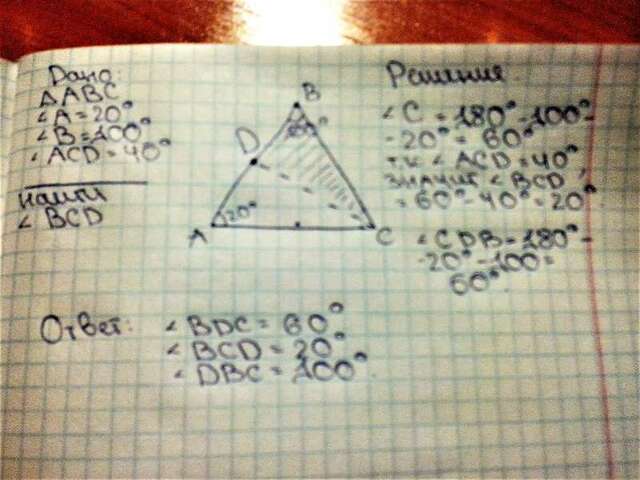 Дано:
ΔABC
∠A = 20°
∠B = 100°
∠ACD = 40°
найти
∠ BCD
B
100°
D
20°
A
C
Решение
∠C = 180° - 100° -
- 20° = 60°
т.к ∠ ACD = 40°
значит ∠ BCD
= 60° - 40° = 20°.
∠CDB = 180° -
- 20° - 100 =
60°.
Ответ: ∠ BDC = 60°
∠ BCD = 20°
∠ DBC = 100°.